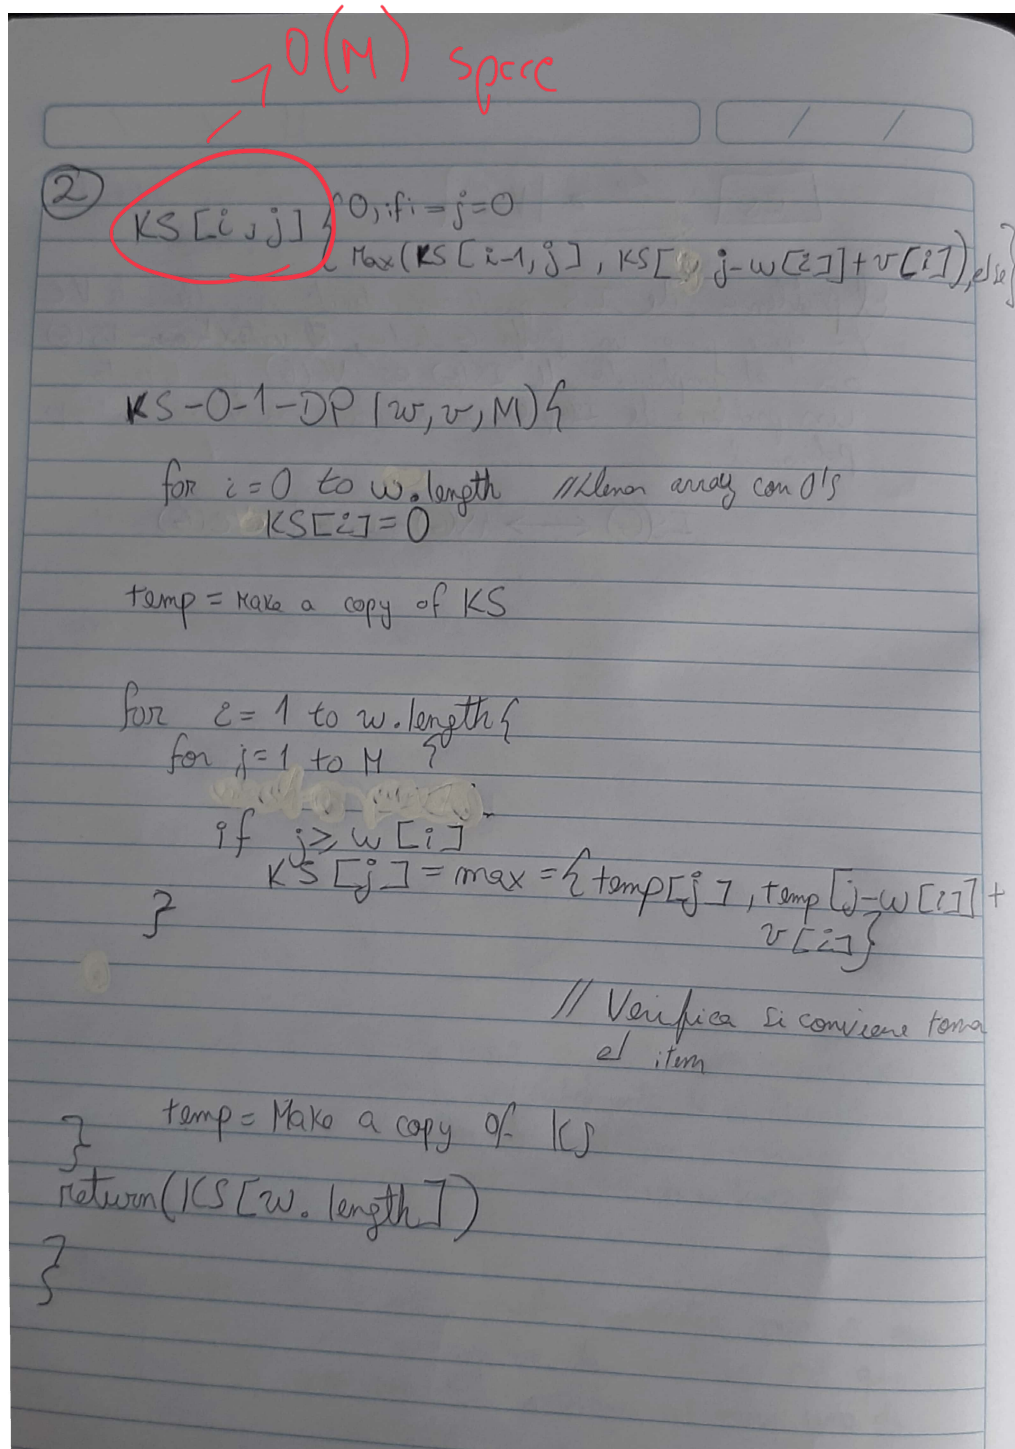 O(M) space
2
KS[i,j] { 0, if i=j=0
{ Max(KS[i-1,j], KS[ j-w[i]]+v[i]), else}
KS-0-1-DP(w,v,M){
for i=0 to w.length //Llenar array con 0's
KS[i]=0
temp = Make a copy of KS
for i=1 to w.length{
for j=1 to M {
if j≥w[i]
KS[j]=max={temp[j], temp[j-w[i]]+
v[i]}
}
// Verifica si conviene toma
el item
temp = Make a copy of KS
}
return(KS[w.length])
}